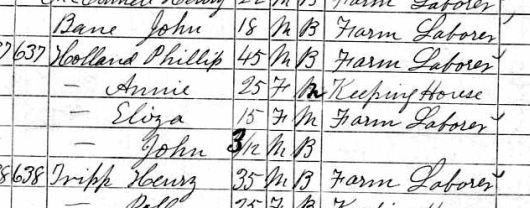 Henry 22 M B Farm Laborer
Bane John 18 M B Farm Laborer
7 637 Holland Phillip 45 M B Farm Laborer
— Annie 25 F M Keeping House
— Eliza 15 F M Farm Laborer
— John 3/12 M B
8 638 Tripp Henry 35 M B Farm Laborer
25 F